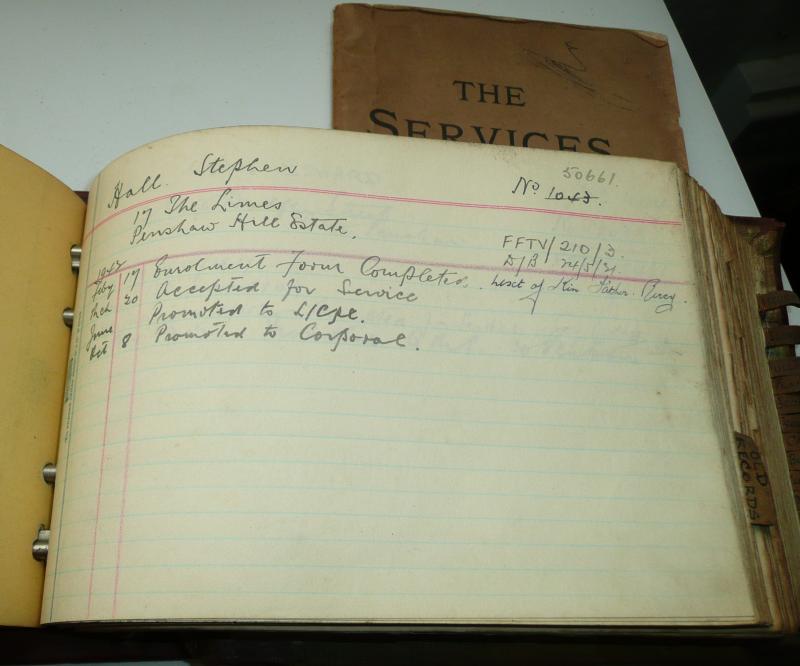 THE
SERVICES
50661.
Hall Stephen
No 1043.
17 The Limes
Penshaw Hill Estate.
FFTV/210/3
D/B 24/5/31.
1947
Feby 17 Enrolment Form Completed. Next of Kin Father. Percy.
Mch 20 Accepted for Service
June Promoted to L/Cpl.
Oct 8 Promoted to Corporal.
OLD
RECORDS